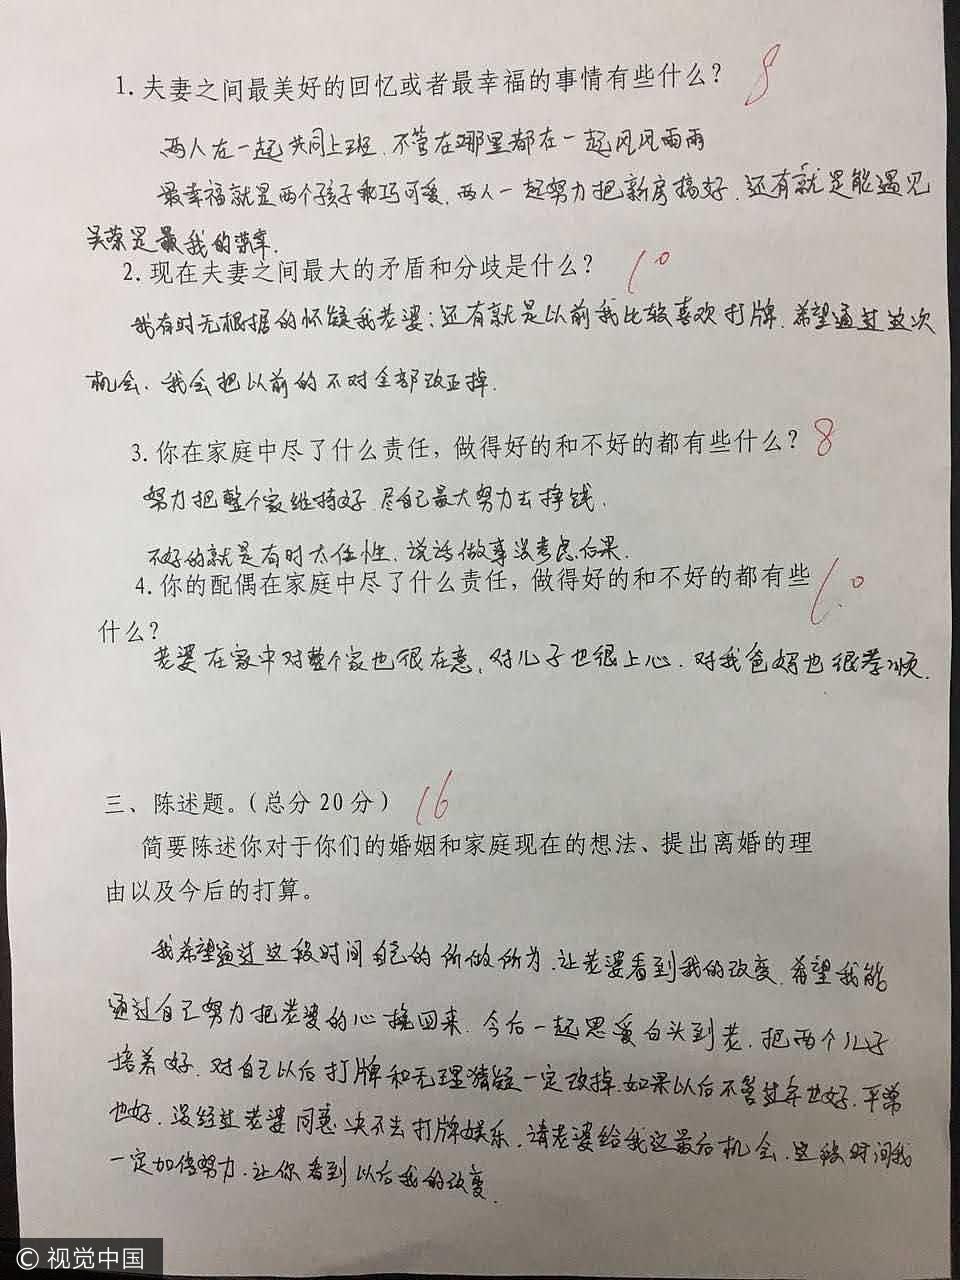 1. 夫妻之间最美好的回忆或者最幸福的事情有些什么？ 8
两人在一起共同上班.不管在哪里都在一起风风雨雨
最幸福就是两个孩子乖巧可爱.两人一起努力把新房搞好.还有就是能遇见
吴荣是最我的荣幸.
2. 现在夫妻之间最大的矛盾和分歧是什么？ 10
我有时无根据的怀疑我老婆;还有就是以前我比较喜欢打牌.希望通过这次
机会、我会把以前的不对全部改正掉.
3. 你在家庭中尽了什么责任，做得好的和不好的都有些什么？ 8
努力把整个家维持好.尽自己最大努力去挣钱.
不好的就是有时太任性.说话做事没考虑后果.
4. 你的配偶在家庭中尽了什么责任，做得好的和不好的都有些 10
什么？
老婆在家中对整个家也很在意,对儿子也很上心.对我爸妈也很孝顺.
三、陈述题。（总分 20 分） 16
简要陈述你对于你们的婚姻和家庭现在的想法、提出离婚的理
由以及今后的打算。
我希望通过这段时间自己的所做所为.让老婆看到我的改变.希望我能
通过自己努力把老婆的心挽回来.今后一起恩爱白头到老.把两个儿子
培养好.对自己以后打牌和无理猜疑一定改掉.如果以后不管过年也好.平常
也好.没经过老婆同意决不去打牌娱乐.请老婆给我这最后机会.这段时间我
一定加倍努力.让你看到以后我的改变.
© 视觉中国